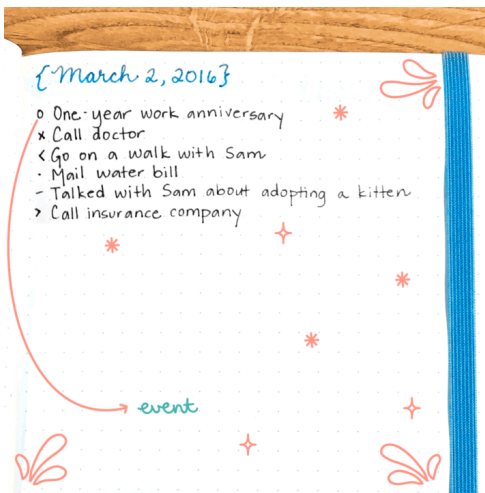 {March 2, 2016}
o One-year work anniversary
x Call doctor
< Go on a walk with Sam
· Mail water bill
– Talked with Sam about adopting a kitten
> Call insurance company
event